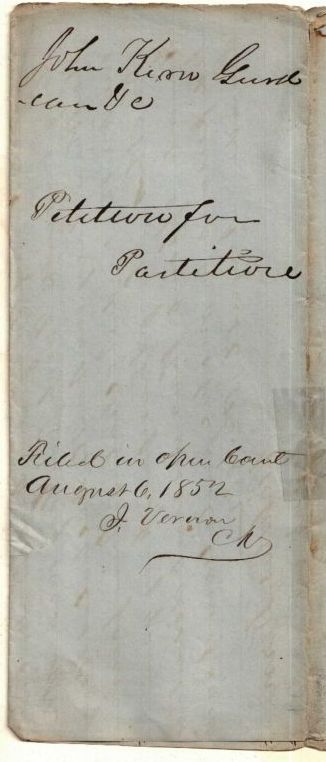 John Kern Guard
-ean &c
Petition for
Partition
Filed in open Court
August 6, 1852
J. Vernon
Clk